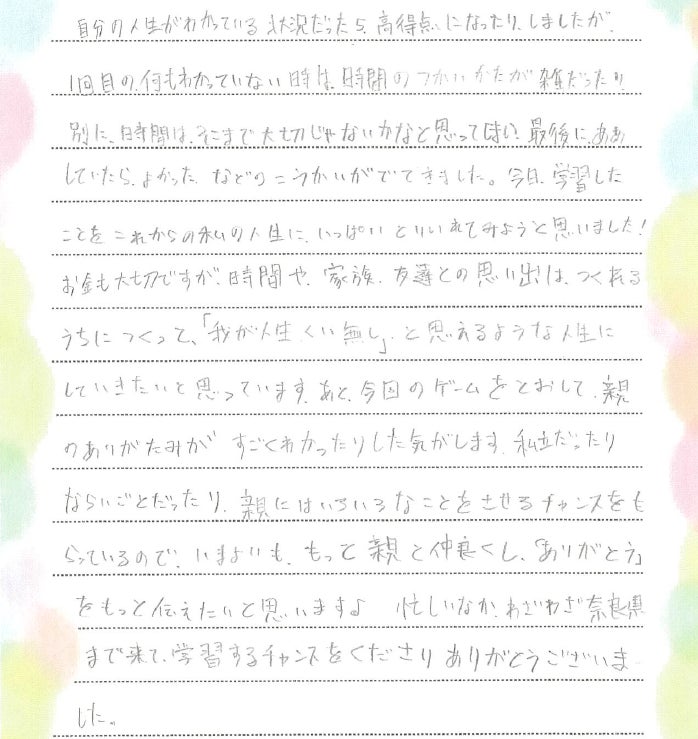 自分の人生がわかっている状況だったら、高得点になったり、しましたが、
1回目の、何もわかっていない時は、時間のつかいかたが雑だったり
別に、時間は、そこまで大切じゃないかなと思ってしまい、最後に、ああ
していたら、よかった、などのこうかいがでてきました。今日、学習した
ことをこれからの私の人生に、いっぱいとりいれてみようと思いました!
お金も大切ですが、時間や、家族、友達との思い出は、つくれる
うちにつくって、「我が人生、くい無し」、と思えるような人生に
していきたいと思っています。あと、今回のゲームをとおして、親
のありがたみが すごくわかったりした気がします。私立だったり
ならいごとだったり、親にはいろいろなことをさせるチャンスをも
らっているので、いまよりも、もっと親と仲良くし、「ありがとう」
をもっと伝えたいと思います♪ 忙しいなか、わざわざ奈良県
まで来て、学習するチャンスをくださりありがとうございま
した。